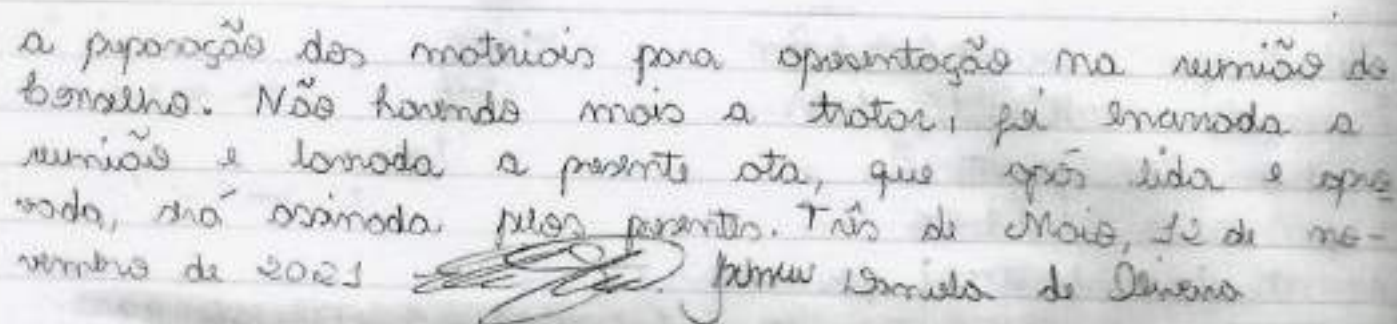 a preparação dos materiais para apresentação na reunião do
Conselho. Não havendo mais a tratar, foi encerrada a
reunião e lavrada a presente ata, que após lida e apro
vada, será assinada pelos presentes. Três de Maio, 12 de no-
vembro de 2021 Daniela de Oliveira